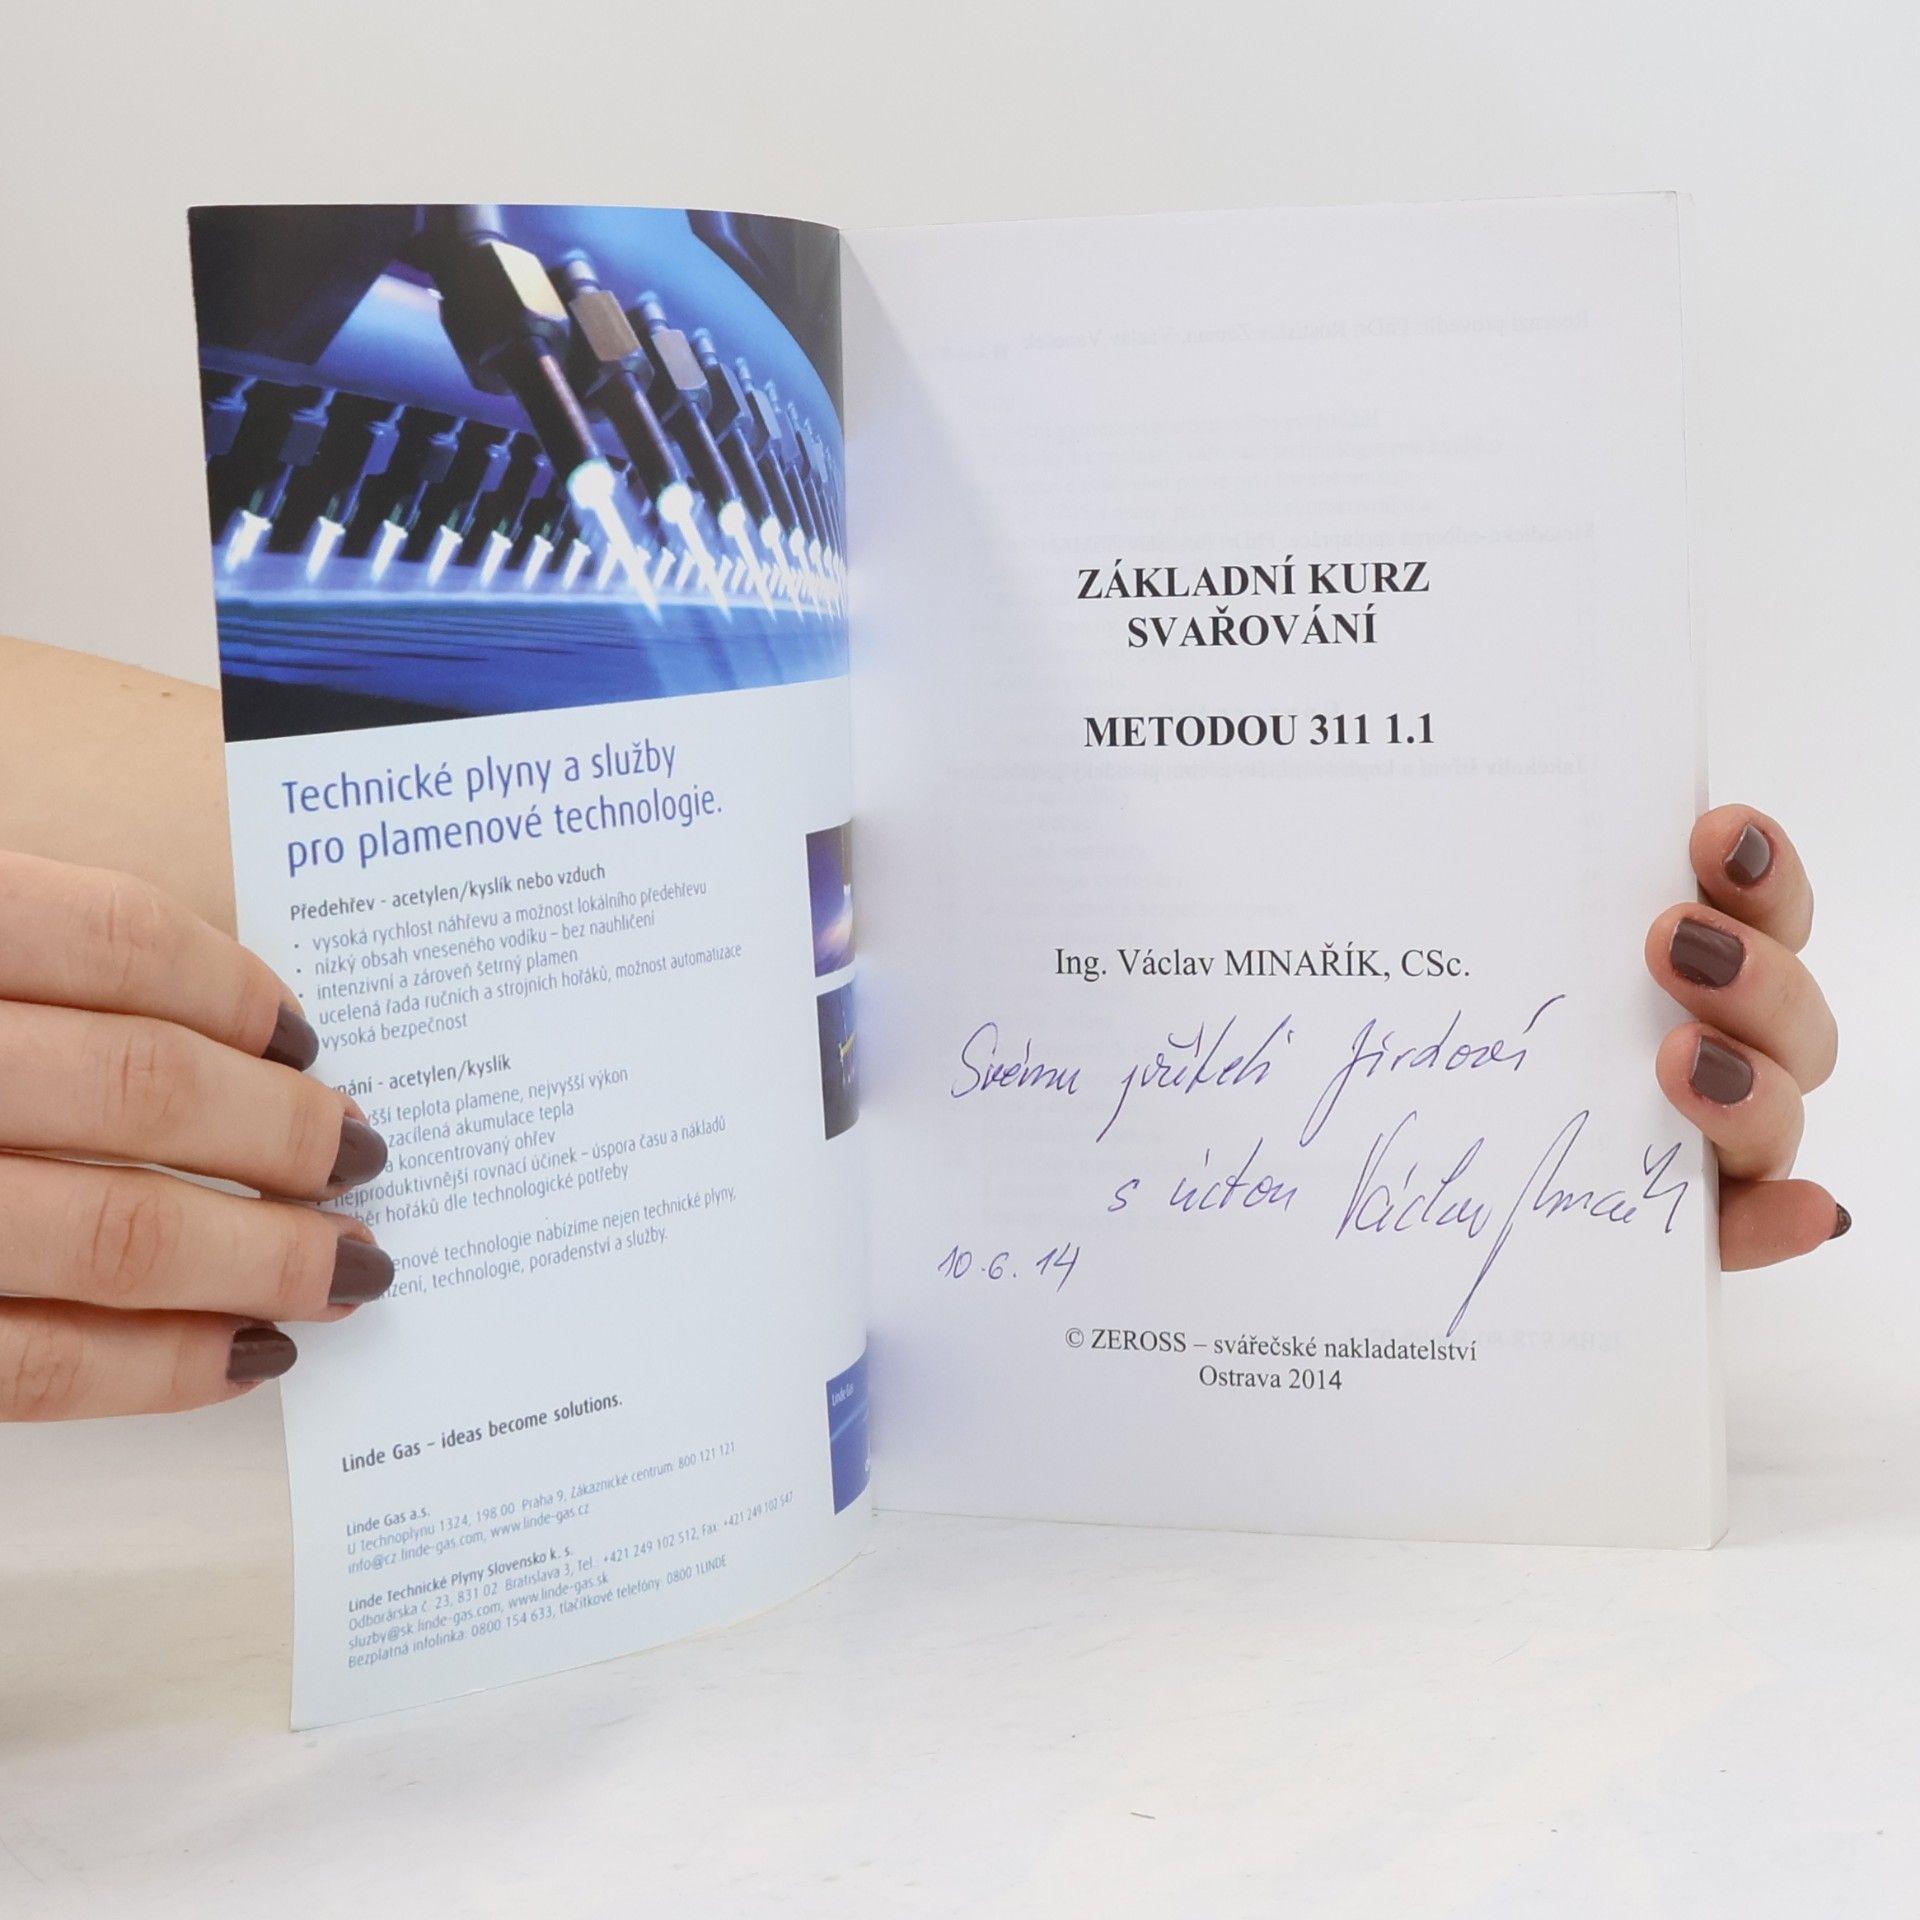 Technické plyny a služby
pro plamenové technologie.
Předehřev - acetylen/kyslík nebo vzduch
• vysoká rychlost náhřevu a možnost lokálního předehřevu
• nízký obsah vneseného vodíku – bez nauhličení
• intenzivní a zároveň šetrný plamen
ucelená řada ručních a strojních hořáků, možnost automatizace
vysoká bezpečnost
- acetylen/kyslík
teplota plamene, nejvyšší výkon
zacílená akumulace tepla
a koncentrovaný ohřev
nejproduktivnější rovnací účinek – úspora času a nákladů
hořáků dle technologické potřeby
technologie nabízíme nejen technické plyny,
technologie, poradenství a služby.
Linde Gas – ideas become solutions.
Linde Gas a.s.
U Technoplynu 1324, 198 00 Praha 9, Zákaznické centrum: 800 121 121
info@cz.linde-gas.com, www.linde-gas.cz
Linde Technické Plyny Slovensko k. s.
Odborárska č. 23, 831 02 Bratislava 3, Tel.: +421 249 102 512, Fax: +421 249 102 547
sluzby@sk.linde-gas.com, www.linde-gas.sk
Bezplatná infolinka: 0800 154 633, tlačítkové telefóny: 0800 1LINDE
Linde Gas
ZÁKLADNÍ KURZ
SVAŘOVÁNÍ
METODOU 311 1.1
Ing. Václav MINAŘÍK, CSc.
Svému příteli Jirdoví
s úctou Václav Minařík
10.6.14
© ZEROSS – svářečské nakladatelství
Ostrava 2014